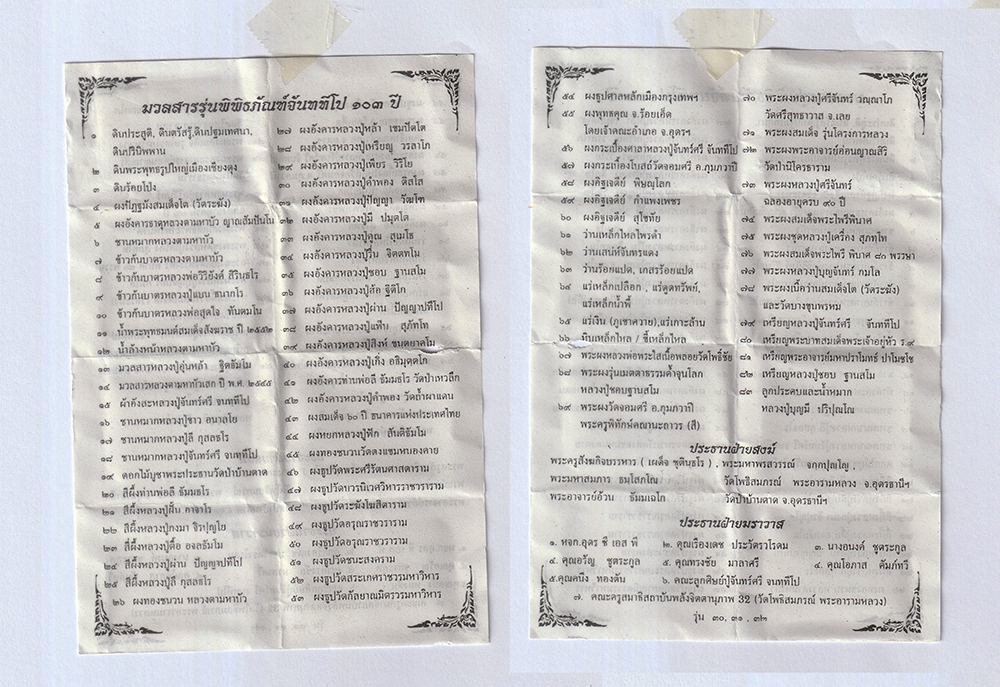 มวลสารรุ่นพิพิธภัณฑ์จันททีโป ๑๐๓ ปี
๑ ดินประสูติ, ดินตรัสรู้,ดินปฐมเทศนา,
ดินปรินิพพาน
๒ ดินพระพุทธรูปใหญ่เมืองเชียงตุง
๓ ดินร้อยโป่ง
๔ ผงปัฏฐมังสมเด็จโต (วัดระฆัง)
๕ ผงอังคารธาตุหลวงตามหาบัว ญาณสัมปันโน
๖ ชานหมากหลวงตามหาบัว
๗ ข้าวก้นบาตรหลวงตามหาบัว
๘ ข้าวก้นบาตรหลวงพ่อวิริยังค์ สิรินฺธโร
๙ ข้าวก้นบาตรหลวงปู่แบน ธนากโร
๑๐ ข้าวก้นบาตรหลวงพ่อสุดใจ ทันตมโน
๑๑ น้ำพระพุทธมนต์สมเด็จสังฆราช ปี ๒๕๕๒
๑๒ น้ำล้างหน้าหลวงตามหาบัว
๑๓ มวลสารหลวงปู่อุ่นหล้า ฐิตธัมโม
๑๔ มวลสารหลวงตามหาบัวเสก ปี พ.ศ. ๒๕๔๕
๑๕ ผ้าอังสะหลวงปู่จันทร์ศรี จนททีโป
๑๖ ชานหมากหลวงปู่ขาว อนาลโย
๑๗ ชานหมากหลวงปู่ลี กุสลธโร
๑๘ ชานหมากหลวงปู่จันทร์ศรี จนททีโป
๑๙ ดอกไม้บูชาพระประธานวัดป่าบ้านตาด
๒๐ สีผึ้งท่านพ่อลี ธัมมธโร
๒๑ สีผึ้งหลวงปู่ฝั้น อาจาโร
๒๒ สีผึ้งหลวงปู่กงมา จิรปุญโญ
๒๓ สีผึ้งหลวงปู่ตื้อ อจลธัมโม
๒๔ สีผึ้งหลวงปู่ผ่าน ปัญญาปทีโป
๒๕ สีผึ้งหลวงปู่ลี กุสลธโร
๒๖ ผงทองชนวน หลวงตามหาบัว
๒๗ ผงอังคารหลวงปู่หล้า เขมปัตโต
๒๘ ผงอังคารหลวงปู่เหรียญ วรลาโภ
๒๙ ผงอังคารหลวงปู่เพียร วิริโย
๓๐ ผงอังคารหลวงปู่คำพอง ติสโส
๓๑ ผงอังคารหลวงปู่ปัญญา วัฒโฑ
๓๒ ผงอังคารหลวงปู่มี ปมุตโต
๓๓ ผงอังคารหลวงปู่คูณ สุเมโธ
๓๔ ผงอังคารหลวงปู่รื่น จิตตทโม
๓๕ ผงอังคารหลวงปู่ชอบ ฐานสโม
๓๖ ผงอังคารหลวงปู่อ้อ ฐิติโก
๓๗ ผงอังคารหลวงปู่ผ่าน ปัญญาปทีโป
๓๘ ผงอังคารหลวงปู่แฟ็บ สุภัทโท
๓๙ ผงอังคารหลวงปู่สิงห์ ขนตยาคโม
๔๐ ผงอังคารหลวงปู่เกิ่ง อธิมุตตโก
๔๑ ผงอังคารท่านพ่อลี ธัมมธโร วัดป่าเหวลึก
๔๒ ผงอังคารหลวงปู่คำพอง วัดถ้ำผาแดน
๔๓ ผงสมเด็จ ๖๐ ปี ธนาคารแห่งประเทศไทย
๔๔ ผงหยกหลวงปู่ฟัก สันติธัมโม
๔๕ ผงทองชนวนวัดดงแขมหนองคาย
๔๖ ผงธูปวัดพระศรีรัตนศาสดาราม
๔๗ ผงธูปวัดบวรนิเวศวิหารราชวราราม
๔๘ ผงธูปวัดระฆังโฆสิตาราม
๔๙ ผงธูปวัดอรุณราชวราราม
๕๐ ผงธูปวัดอรุณราชวราราม
๕๑ ผงธูปวัดชนะสงคราม
๕๒ ผงธูปวัดสระเกศราชวรมหาวิหาร
๕๓ ผงธูปวัดกัลยาณมิตรวรมหาวิหาร
๕๔ ผงธูปศาลหลักเมืองกรุงเทพฯ
๕๕ ผงพุทธคุณ จ.ร้อยเอ็ด
โดยเจ้าคณะอำเภอ จ.อุดรฯ
๕๖ ผงกระเบื้องศาลาหลวงปู่จันทร์ศรี จนททีโป
๕๗ ผงกระเบื้องโบสถ์วัดจอมศรี อ.กุมภวาปี
๕๘ ผงอิฐเจดีย์ พิษณุโลก
๕๙ ผงอิฐเจดีย์ กำแพงเพชร
๖๐ ผงอิฐเจดีย์ สุโขทัย
๖๑ ว่านเหล็กไหลไพรดำ
๖๒ ว่านเสน่ห์จันทร์แดง
๖๓ ว่านร้อยแปด, เกสรร้อยแปด
๖๔ แร่เหล็กเปลือก , แร่ดูดทรัพย์,
แร่เหล็กน้ำพี้
๖๕ แร่เงิน (ภูเขาควาย),แร่เกาะล้าน
๖๖ หินเหล็กไหล / ขี้เหล็กไหล
๖๗ พระผงหลวงพ่อพระใสเนื้อพลอยวัดโพธิ์ชัย
๖๘ พระผงรุ่นเมตตาธรรมค้ำจุนโลก
หลวงปู่ชอบฐานสโม
๖๙ พระผงวัดจอมศรี อ.กุมภวาปี
พระครูพิทักษ์คณานะถาวร (สี)
๗๐ พระผงหลวงปู่ศรีจันทร์ วณฺณาโภ
วัดศรีสุทธาวาส จ.เลย
๗๑ พระผงสมเด็จ รุ่นโครงการหลวง
๗๒ พระผงพระอาจารย์อ่อนญาณสิริ
วัดป่านิโครธาราม
๗๓ พระผงหลวงปู่ศรีจันทร์
ฉลองอายุครบ ๙๐ ปี
๗๔ พระผงสมเด็จพระไพรีพินาศ
๗๕ พระผงชุดหลวงปู่เครื่อง สุภทฺโท
๗๖ พระผงสมเด็จพระไพรี พินาศ ๘๐ พรรษา
๗๗ พระผงหลวงปู่บุญจันทร์ กมโล
๗๘ พระผงเนื้อว่านสมเด็จโต (วัดระฆัง)
และวัดบางขุนพรหม
๗๙ เหรียญหลวงปู่จันทร์ศรี จันททีโป
๘๐ เหรียญพระบาทสมเด็จพระเจ้าอยู่หัว ร.๙
๘๑ เหรียญพระอาจารย์มหาปราโมทย์ ปาโมชโช
๘๒ เหรียญหลวงปู่ชอบ ฐานสโม
๘๓ ลูกประคบและน้ำหมาก
หลวงปู่บุญมี ปริปุณโณ
ประธานฝ่ายสงฆ์
พระครูสังฆกิจบรรหาร ( เผด็จ ชุตินธโร ) , พระมหาพรสวรรณ์ จกฺกปุญฺโญ ,
พระมหาสมภาร ธมฺโสภโณ วัดโพธิสมภรณ์ พระอาราม หลวง จ.อุดรธานีฯ
พระอาจารย์อ้วน ธัมมเฉโก วัดป่าบ้านตาด จ.อุดรธานีฯ
ประธานฝ่ายฆราวาส
๑. หจก.อุดร ซี เอส พี ๒. คุณเรืองเดช ประวัตรวโรดม ๓. นางอนงค์ ชูตระกูล
๔. คุณอรัญ ชูตระกูล ๕. คุณทรงชัย มาลาศรี ๔. คุณโอภาส คัมภ์ทวี
๕.คุณคนึง ทองตัน ๖. คณะลูกศิษย์ปู่จันทร์ศรี จนททีโป
๗. คณะครูสมาธิสถาบันพลังจิตตานุภาพ 32 (วัดโพธิสมภรณ์ พระอารามหลวง)
รุ่น ๓๐, ๓๑ , ๓๒